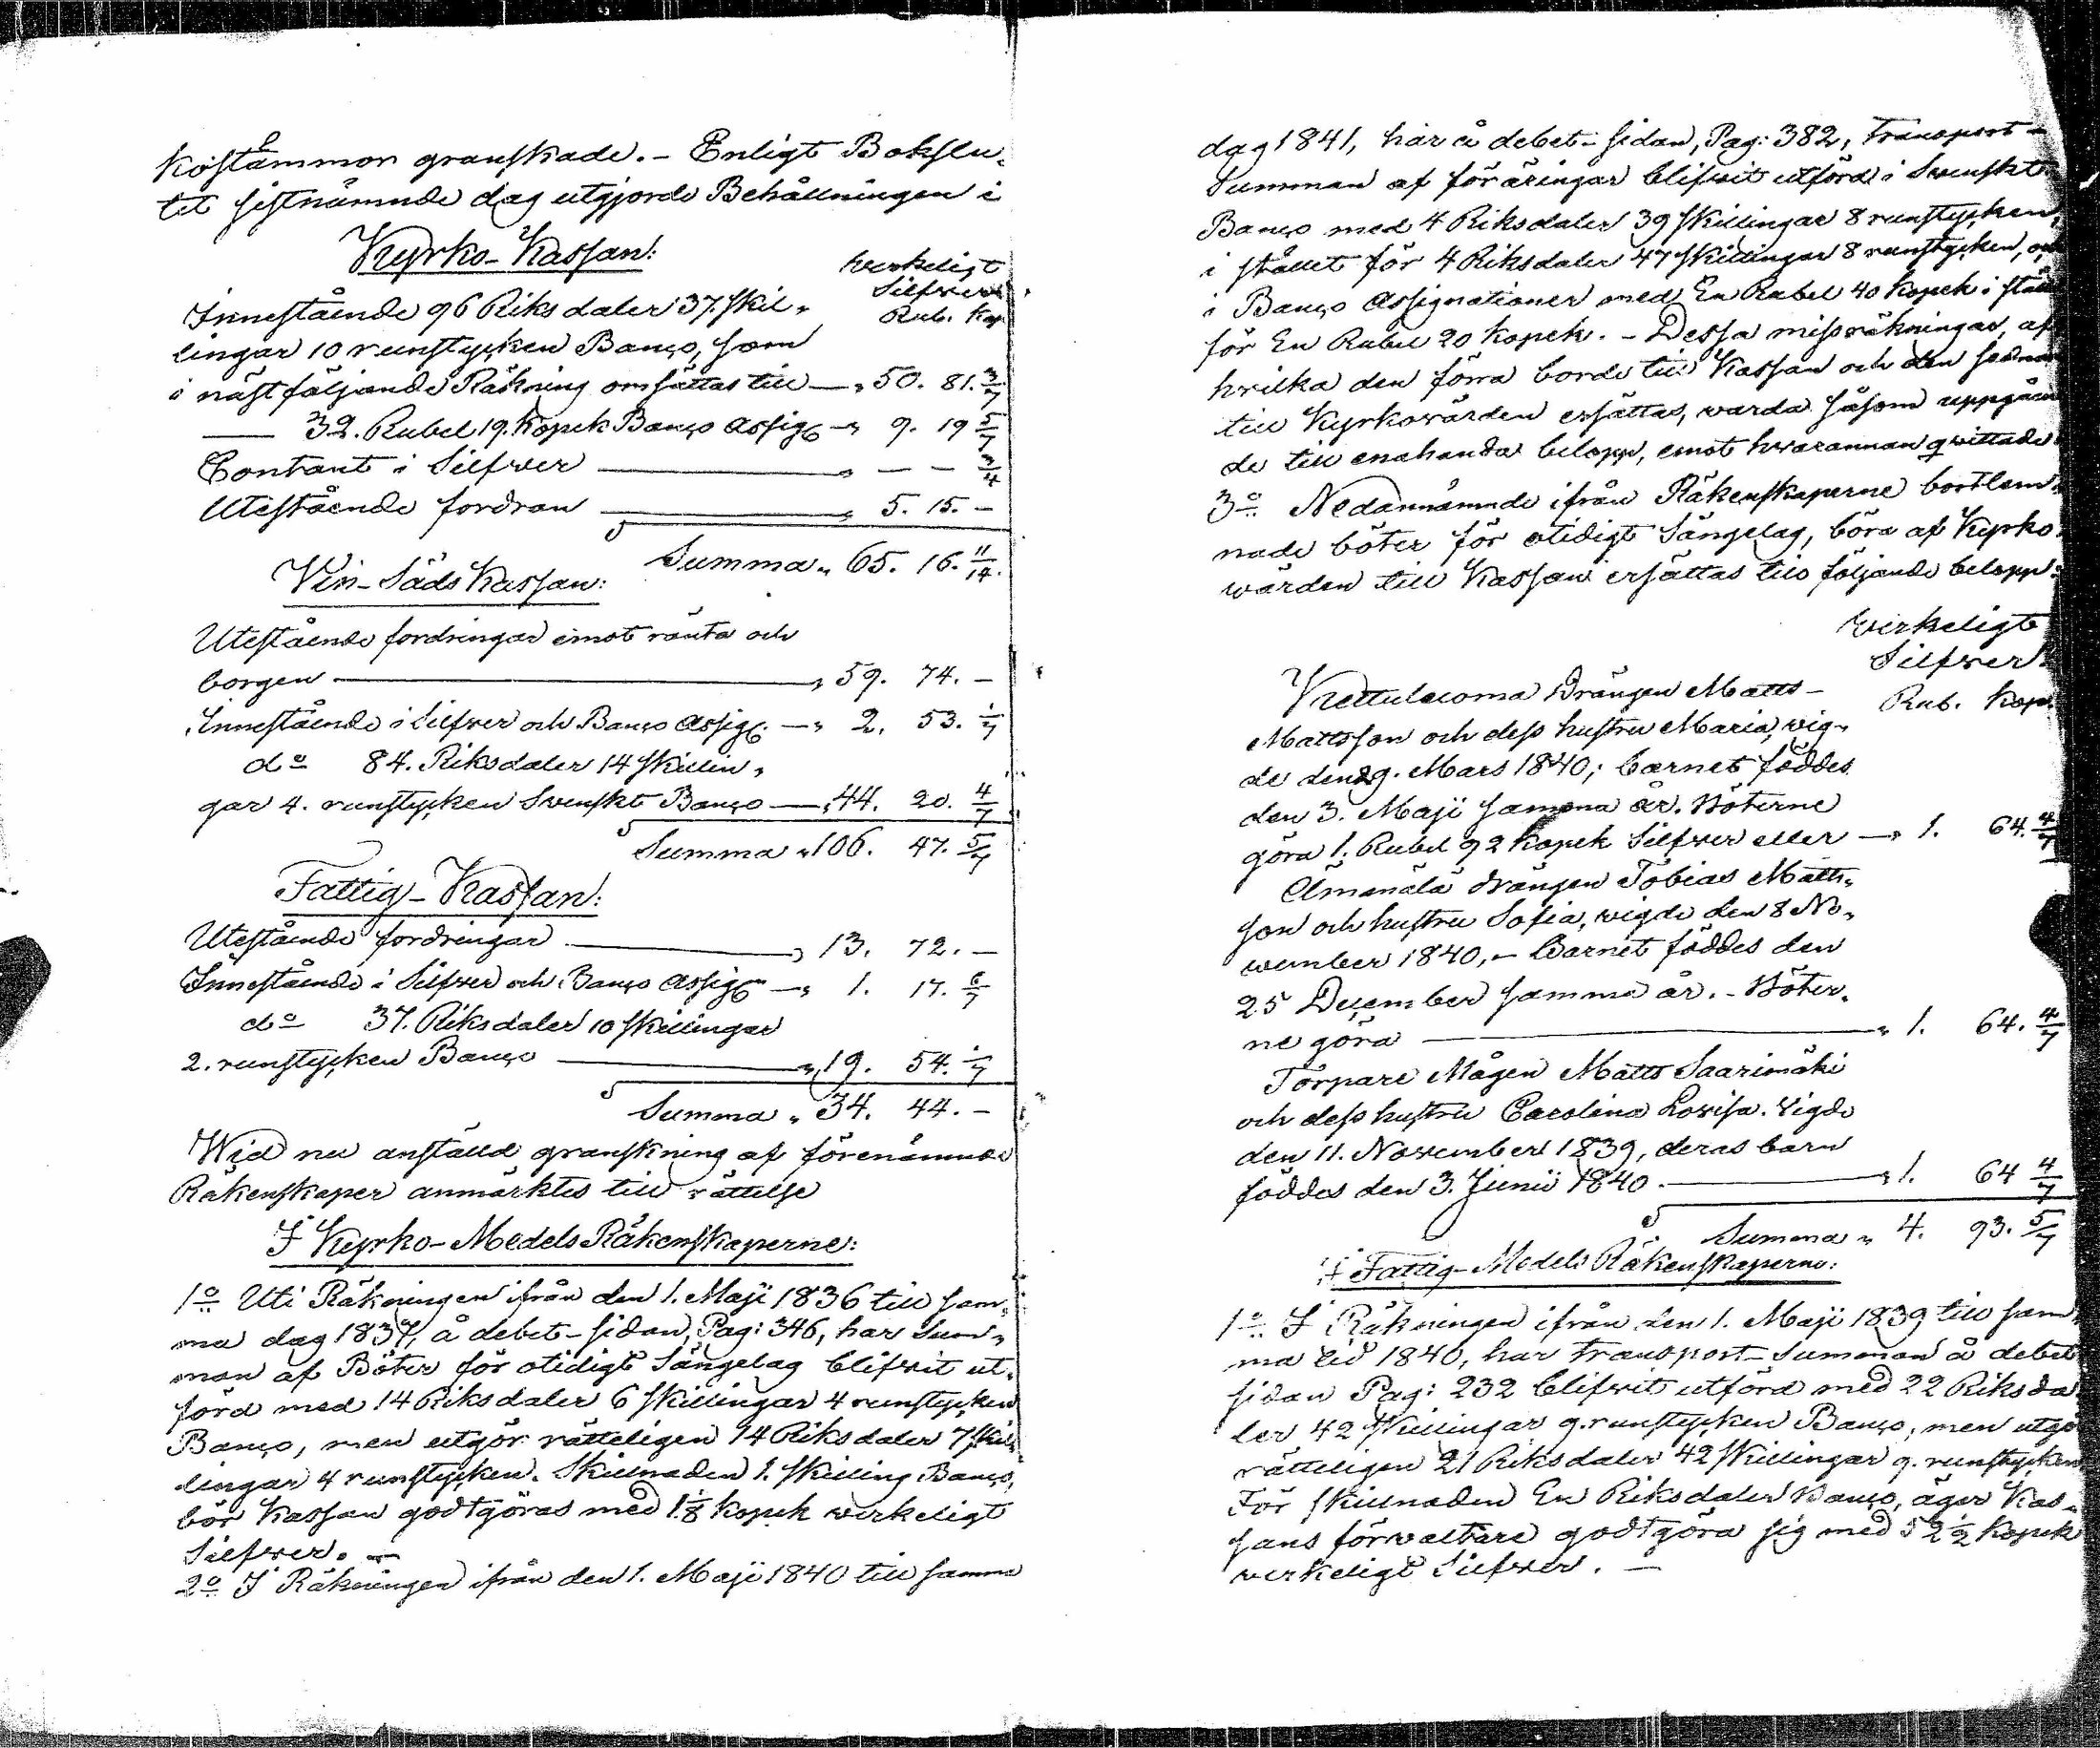 kostämmor granskade. – Enligt Bokslu-
tet sistnämnde dag utgjorde Behållningen i
Kyrko-Kassan:
Werkeligt
Silfver
Rub. Kop.
Innestående 96 Riksdaler 37. skil-
lingar 10 runstycken Banco, som
i nästföljande Räkning omsättas till — „ 50. 81. 3/7
— 32. Rubel 19. Kopek Banco Assig — „ 9. 19 5/7
Contant i Silfver — „ — — 3/4
Utestående fordran — „ 5. 15. –
Summa „ 65. 16. 11/14.
Vin-Säds Kassan:
Utestående fordringar emot ränta och
borgen — „ 59. 74. –
Innestående i Silfver och Banco Assig. — „ 2. 53. 1/7
do 84. Riksdaler 14 skillin-
gar 4. runstycken Svenskt Banco — „ 44. 20. 4/7
Summa „ 106. 47. 5/7
Fattig-Kassan:
Utestående fordringar — „ 13. 72. –
Innestående i Silfver och Banco Assig — „ 1. 17. 6/7
do 37. Riksdaler 10 skillingar
2. runstycken Banco — „ 19. 54. 1/7
Summa „ 34. 44. –
Wid nu anställd granskning af förenämnde
Räkenskaper anmärktes till rättelse
I Kyrko-Medels Räkenskaperne:
1o Uti Räkningen ifrån den 1. Maji 1836 till sam-
ma dag 1837, å debet-sidan, Pag: 346, har Sum-
man af Böter för otidigt Sängelag blifvit ut-
förd med 14 Riksdaler 6 skillingar 4 runstycken
Banco, men utgör rätteligen 14 Riksdaler 7 skil-
lingar 4 runstycken. Skillnaden 1. skilling Banco,
bör Kassan godtgöras med 1 1/8 kopek werkeligt
Silfver. –
2o I Räkningen ifrån den 1. Maji 1840 till samma
dag 1841, har å debet-sidan, Pag: 382, Transport-
Summan af föräringar blifvit utförd i Svenskt
Banco med 4 Riksdaler 39 skillingar 8 runstycken,
i stället för 4 Riksdaler 47 skillingar 8 runstycken, och
i Banco Assignationer med En Rubel 40 kopek i ställ
för En Rubel 20 kopek. – Dessa missräkningar, af
hvilka den förra borde till Kassan och den sednar
till Kyrkovärden ersättas, warda såsom uppgåen
de till enahanda belopp, emot hvarannan qvittade
3o Nedannämnde ifrån Räkenskaperne bortlem-
nade böter för otidigt Sängelag, böra af Kyrko-
wärden till Kassan ersättas till följande belopp:
Werkeligt
Silfver
Rub. Kop.
Kettulaoma Drängen Matts
Mattsson och dess hustru Maria, wig-
de den 29. Mars 1840; barnet föddes
den 3. Maji samma år. Böterne
göra 1. Rubel 92 kopek Silfver eller — „ 1. 64. 4/7
Ämmälä drängen Tobias Matts-
son och hustru Sofia, wigde den 8 No-
wember 1840, – Barnet föddes den
25 December samma år. – Böter-
ne göra — „ 1. 64. 4/7
Torpare Mågen Matts Saarimäki
och dess hustru Carolina Lovisa. Vigde
den 11. November 1839, deras barn
föddes den 3. Junii 1840. — „ 1. 64 4/7
Summa „ 4. 93. 5/7
I Fattig-Medels Räkenskaperne:
1o I Räkningen ifrån den 1. Maji 1839 till sam-
ma tid 1840, har Transport-Summan å debet
sidan Pag: 232 blifvit utförd med 22 Riksda
ler 42 skillingar 9. runstycken Banco, men utgö
rätteligen 21 Riksdaler 42 skillingar 9. runstycken
För skillnaden En Riksdaler Banco, äger Kas-
sans förvaltare godtgöra sig med 52 1/2 kopek
werkeligt Silfver. –